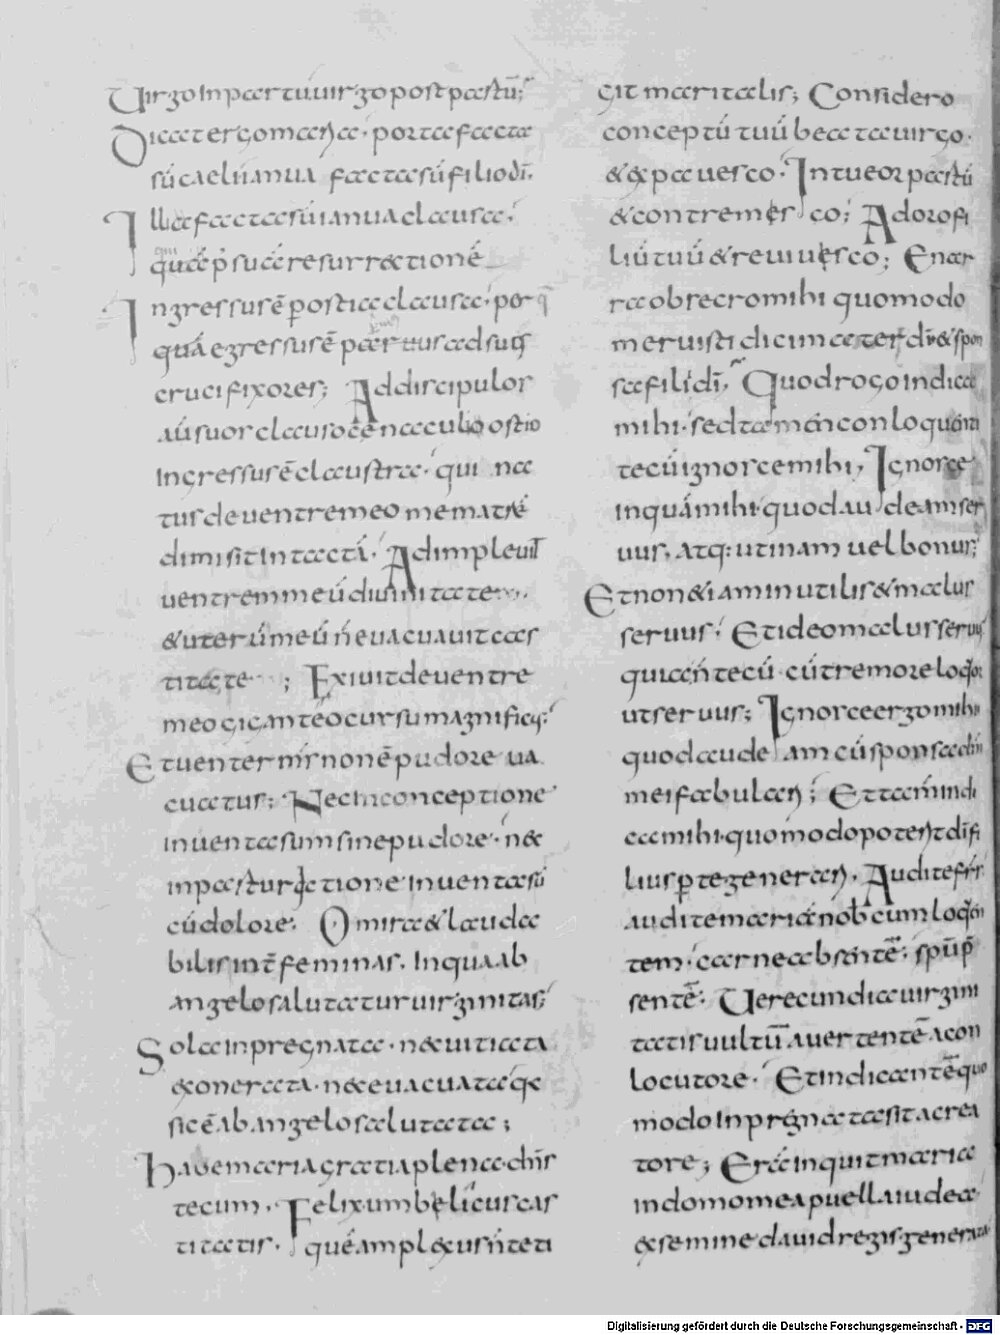 Uirgo in partu uirgo post partū;
Dicat ergo maria· porta facta
sū caeli ianua facta sū filio dī.
Illa facta sū ianua clausa·
quā p̄ suā resurrectionē
Ingressus ē postia clausa· per
quā egressus ē
crucifixores; Ad discipulor
clauso ianaculi ostio
ingressus ē claustra· qui na
tus de uentre meo me matrē
dimisit intactā· Adimpleuit
uentrem meū diuinitate
& uterū meū n̄ euacuauit cas
titate; Exiuit de uentre
meo gigantēo cursu magnificus
Et uenter mīs non ē pudore ua
cuatus; Nec in conceptione
inuenta sum sine pudore· n&
in parturitione inuenta sū
cū dolore· O mira & lauda
bilis int̄ feminas. In qua ab
angelo salutatur uirginitas;
Sola inpregnata· n& uitiata
& onerata· n& euacuata
sic ē ab angelo salutata;
Haue maria gratia plena dn̄s
tecum. Felix umbelicus cas
titatis. quē amplexus n̄ teti
git maritalis; Considero
conceptū tuū beata uirgo·
& expauesco· Intueor partū
& contremesco; Adoro fi
liū tuū & reuiuesco; Enar
ra obsecro mihi quomodo
meruisti dici mater dn̄i & spon
sa filii dī. Quod rogo indica
mihi· sed tam̄ in conloquen
tecū ignosce mihi, Ignosce
inquā mihi quod audeam ser
uus. atq· utinam uel bonus;
Et non etiam inutilis & malus
seruus· Et ideo malus seruus
quia n̄ tecū· cū tremore loqor
ut seruus; Ignosce ergo mihi
quod audeam cū sponsa dn̄i
mei fabulari; Et tam̄ indi
ca mihi· quomodo potest dī fi
lius p te generari· Audite frs
audite mariā nobcum loqen
tem· carne absentē· spū p
sentē· Uerecundia uirgini
tatis uultū auertentē a con
locutore· Et indicantē quo
modo inpregnata sit a crea
tore; Erā inquit maria
in domo mea puella iudea·
ex semine dauid regis generata